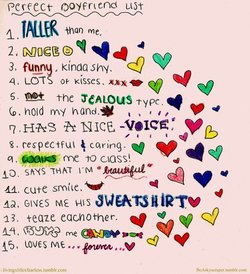 perfect boyfriend list
1. TALLER than me.
2. NICE
3. funny, kinda shy.
4. LOTS of kisses. xxx
5. not the JEALOUS type.
6. hold my hand.
7. HAS A NICE -VOICE-
8. respectful & caring.
9. walks me to class!
10. SAYS THAT I'M "beautiful"
11. cute smile.
12. GIVES ME HIS SWEATSHIRT
13. teaze eachother.
14. BUYS me CANDY
15. LOVES ME ...forever ...
livingalifeisfearless.tumblr.com